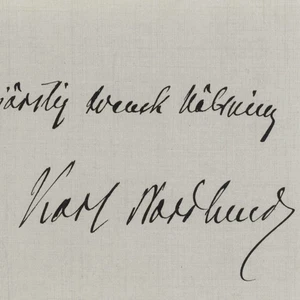 järtlig svensk hälsning
Karl Nordlund